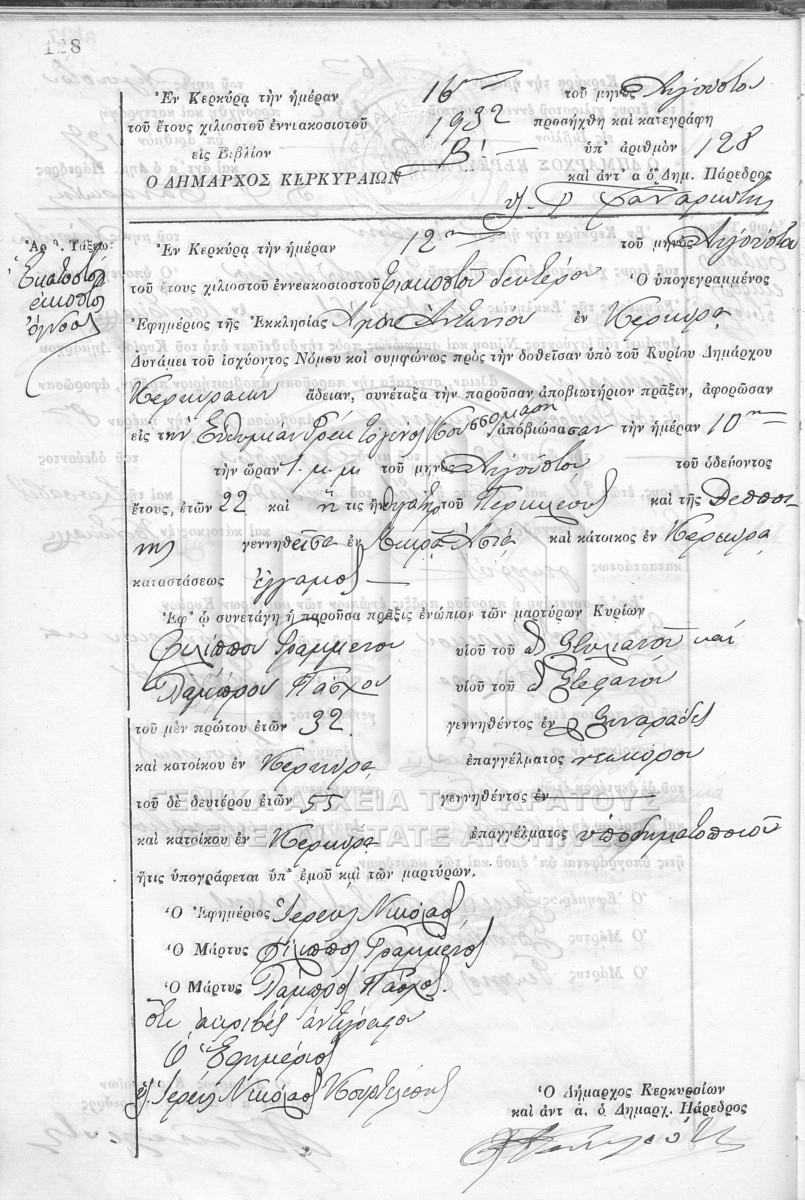 128
Ἐν Κερκύρᾳ τὴν ἡμέραν 16ην τοῦ μηνὸς Αὐγούστου
τοῦ ἔτους χιλιοστοῦ ἐννιακοσιοστοῦ 1932 προσήχθη καὶ κατεγράφη
εἰς Βιβλίον Β' ὑπ' ἀριθμὸν 128
Ο ΔΗΜΑΡΧΟΣ ΚΕΡΚΥΡΑΙΩΝ καὶ ἀντ' α ὁ Δημ. Πάρεδρος
Ἐν Κερκύρᾳ τὴν ἡμέραν 12ην τοῦ μηνὸς Αὐγούστου
τοῦ ἔτους χιλιοστοῦ ἐννεακοσιοστοῦ τριακοστοῦ δευτέρου Ὁ ὑπογεγραμμένος
Ἑκατοστὸν
εἰκοστὸν
ὄγδοον
Ἐφημέριος τῆς Ἐκκλησίας Ἁγίου Ἀντωνίου ἐν Κερκύρᾳ
Δυνάμει τοῦ ἰσχύοντος Νόμου καὶ συμφώνως πρὸς τὴν δοθεῖσαν ὑπὸ τοῦ Κυρίου Δημάρχου
Κερκυραίων ἄδειαν, συνέταξα τὴν παροῦσαν ἀποβιωτήριον πρᾶξιν, ἀφορῶσαν
εἰς τὴν Εὐθυμίαν ἀποβιώσασαν τὴν ἡμέραν 10ην
τὴν ὥραν 1 μ.μ. τοῦ μηνὸς Αὐγούστου τοῦ ὁδεύοντος
ἔτους, ἐτῶν 22 καὶ ἥ τις ἦν θυγάτηρ τοῦ Περικλέους καὶ τῆς Δεσποί-
νης γεννηθεῖσα ἐν Μικρᾷ Ἀσίᾳ καὶ κάτοικος ἐν Κερκύρᾳ
καταστάσεως ἔγγαμος
Ἐφ' ᾧ συνετάγη ἡ παροῦσα πρᾶξις ἐνώπιον τῶν μαρτύρων Κυρίων
Φιλίππου Γραμμένου υἱοῦ τοῦ Στυλιανοῦ καὶ
Λάμπρου Πάσχου υἱοῦ τοῦ Στεφάνου
τοῦ μὲν πρώτου ἐτῶν 32 γεννηθέντος ἐν Σιναράδες
καὶ κατοίκου ἐν Κερκύρᾳ ἐπαγγέλματος νεωκόρου
τοῦ δὲ δευτέρου ἐτῶν 55 γεννηθέντος ἐν
ΓΕΝΙΚΑ ΑΡΧΕΙΑ ΤΟΥ ΚΡΑΤΟΥΣ
GENERAL STATE ARCHIVES
καὶ κατοίκου ἐν Κερκύρᾳ ἐπαγγέλματος ὑποδηματοποιοῦ
ἥτις ὑπογράφεται ὑπ' ἐμοῦ καὶ τῶν μαρτύρων.
Ὁ Ἐφημέριος Ἱερεὺς Νικόλαος
Ὁ Μάρτυς Φίλιππος Γραμμένος
Ὁ Μάρτυς Λάμπρος Πάσχος
Ὅτι ἀκριβὲς ἀντίγραφον
Ὁ Ἐφημέριος
Ἱερεὺς Νικόλαος
Ὁ Δήμαρχος Κερκυραίων
καὶ ἀντ α, ὁ Δημαρχ. Πάρεδρος